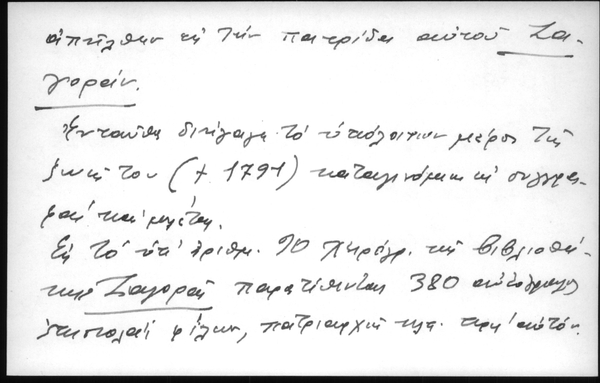 ἀπῆλθεν εἰς τὴν πατρίδα αὐτοῦ Ζα-
γοράν.
Ἐνταῦθα διήγαγε τὸ ὑπόλοιπον μέρος τῆς
ζωῆς του († 1791) καταγινόμενος εἰς συγγρα-
φὰς καὶ μελέτας.
Εἰς τὸ ὑπ' ἀριθμ. 90 χειρόγρ. τῆς Βιβλιοθή-
κης Ζαγορᾶς παρατίθενται 380 αὐτόγραφοι
ἐπιστολαὶ φίλων, πατριαρχῶν κλπ. πρὸς αὐτόν.